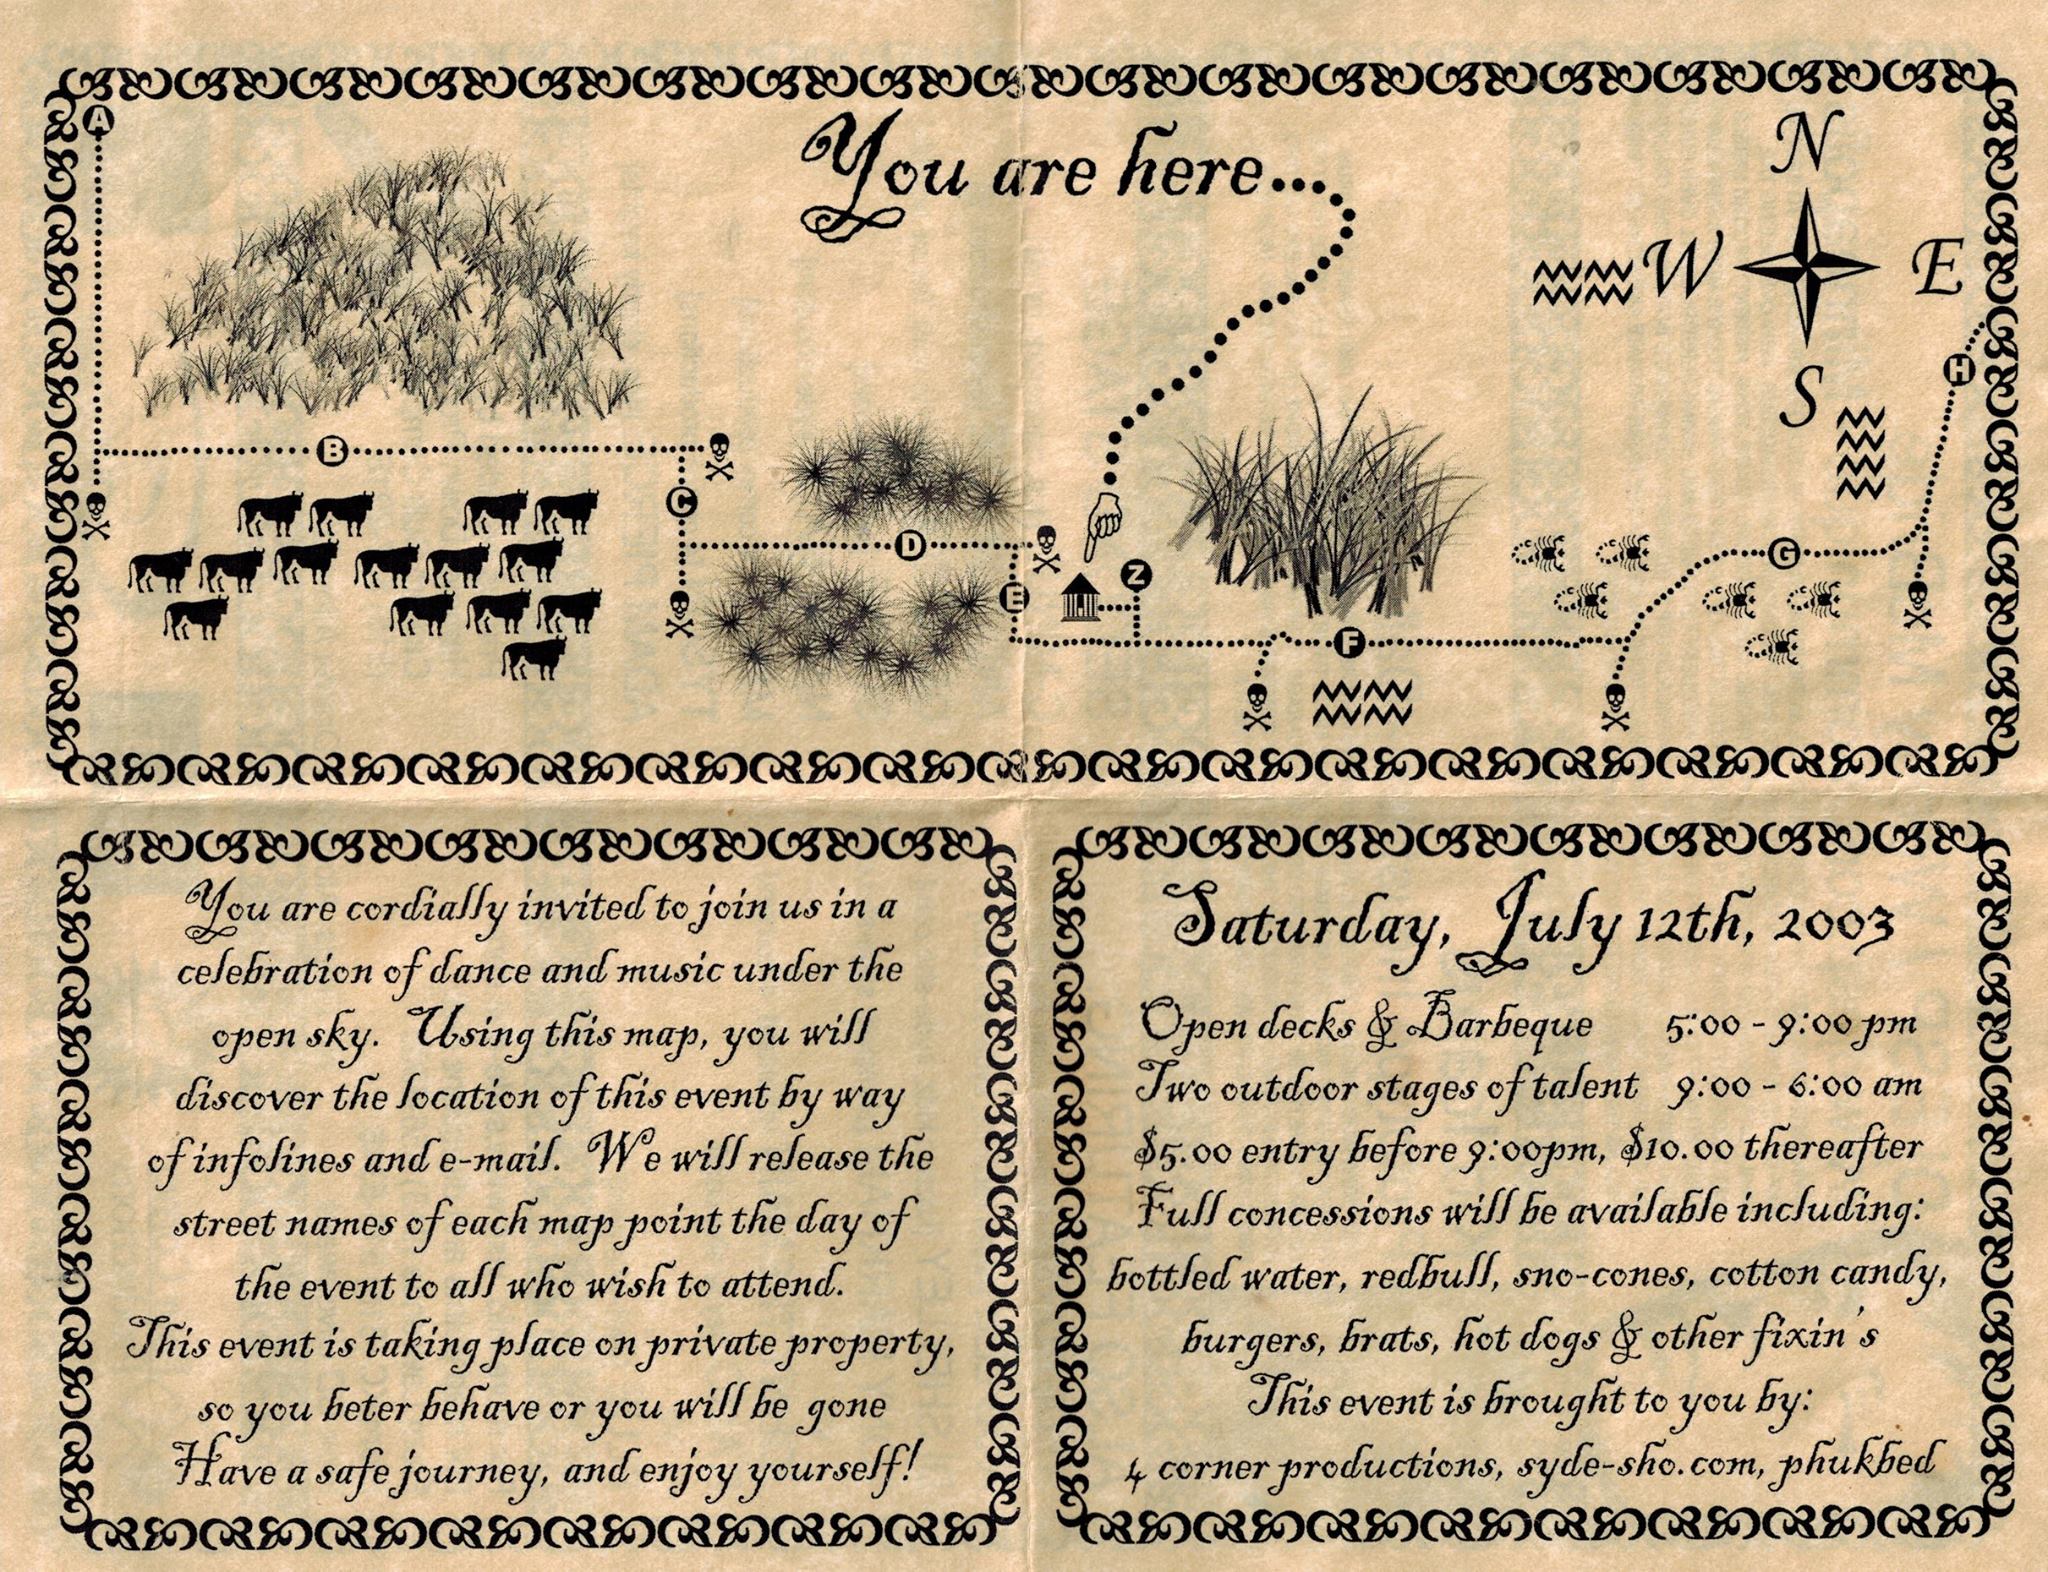 A
You are here...
N
W
E
H
S
B
C
D
Z
E
F
G
You are cordially invited to join us in a
celebration of dance and music under the
open sky. Using this map, you will
discover the location of this event by way
of infolines and e-mail. We will release the
street names of each map point the day of
the event to all who wish to attend.
This event is taking place on private property,
so you beter behave or you will be gone
Have a safe journey, and enjoy yourself!
Saturday, July 12th, 2003
Open decks & Barbeque 5:00 - 9:00 pm
Two outdoor stages of talent 9:00 - 6:00 am
$5.00 entry before 9:00pm, $10.00 thereafter
Full concessions will be available including:
bottled water, redbull, sno-cones, cotton candy,
burgers, brats, hot dogs & other fixin's
This event is brought to you by:
4 corner productions, syde-sho.com, phukbed